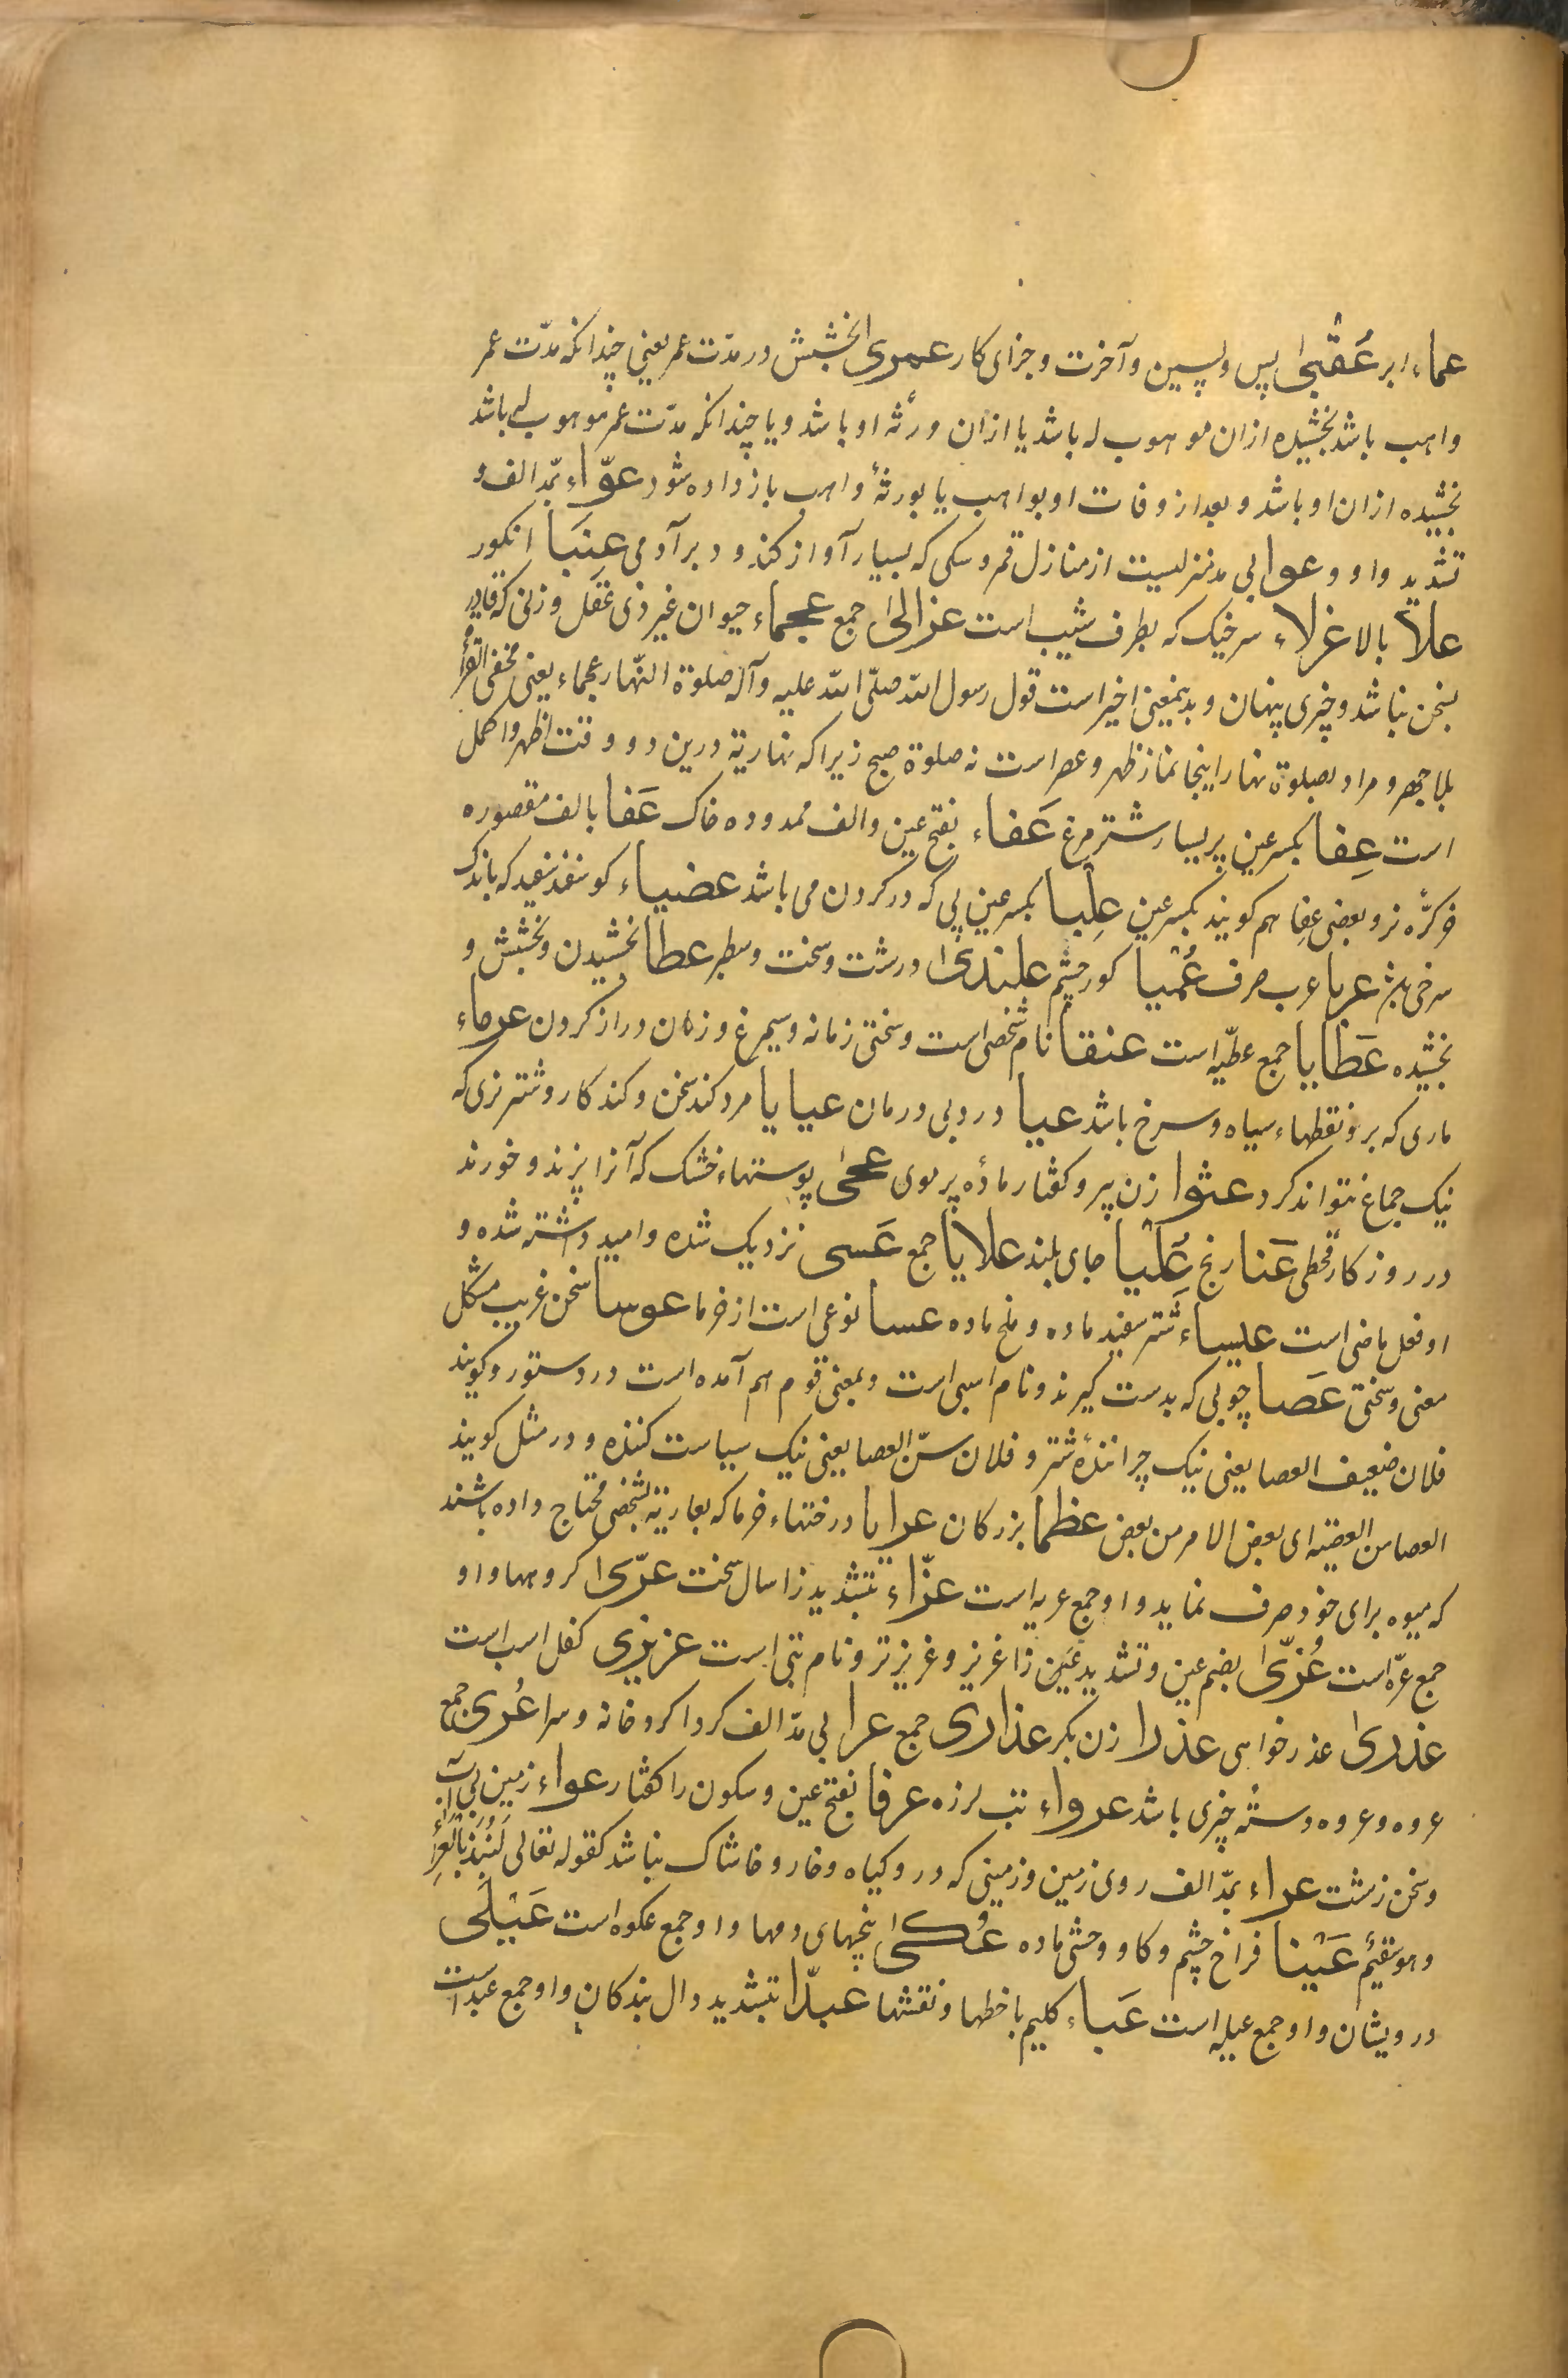 عماء ابر عُقْبیٰ پس و پسین و آخرت و جزای کار عمری بخشش در مدّت عمر یعنی چندانکه مدّت عمر
واهب باشد بخشیده ازان موهوب له باشد یا ازان ورثه او باشد و یا چندانکه مدّت عمر موهوب له باشد
بخشیده ازان او باشد و بعد از وفات او بواهب یا بورثهٔ واهب باز داده شود عوّاء بمدّ الف و
تشدید واو و عوا بی مد منزلیست از منازل قمر و سکی که بسیار آواز کند و دبر آدمی عِنَبا انکور
علاً بالا عزلاء سر خیک که بطرف شیب است عزالیٰ جمع عجماء حیوان غیر ذی عقل و زنی که قادر
بسخن نباشد و چیزی پنهان و بدینمعنی اخیر است قول رسول الله صلّی الله علیه و آله صلوة النّهار عجماء یعنی مخفی القرأ
بلا جهر و مراد بصلوة نهار اینجا نماز ظهر و عصر است نه صلوة صبح زیرا که نهاریة درین دو وقت اظهر و اکمل
است عِفا بکسر عین پر بسیار شترمرغ عَفاء بفتح عین و الف ممدوده خاک عَفا بالف مقصوره
خر کرّه نر و بعضی عِفا هم کویند بکسر عین عِلْبا بکسر عین پی که در کردن می باشد عضیاء کوسفند سفید که باندک
سرخی بزند عربا عرب صرف عُمْیا کور چشم علندیٰ درشت و سخت و سطبر عطا بخشیدن و بخشش و
بخشیده عَطایا جمع عطیّه است عنقا نام شخصی است و سختی زمانه و سیمرغ و زمان دراز کردن عرماء
ماری که برو نقطهاء سیاه و سرخ باشد عیا درد بی درمان عیایا مرد کند سخن و کند کار و شتر نری که
نیک جماع نتواند کرد عثوا زن پیر و کفتار مادّه پر موی عجیٰ پوستهاء خشک که آنرا پزند و خورند
در روزکار قحطی عَنا رنج عَلْیا جای بلند علایا جمع عَسی نزدیک شده و امید داشته شده و
او فعل ماضی است عیساء شتر سفید ماده و ملخ ماده عسا نوعی است از خرما عوسا سخن غریب مشکل
معنی و سختی عَصا چوبی که بدست کیرند و نام اسبی است و بمعنی قوم هم آمده است در دستور و کویند
فلان ضعیف العصا یعنی نیک چرانندهٔ شتر و فلان سنّ العصا یعنی نیک سیاست کننده و در مثل کویند
العصا من العصیّه ای بعض الامر من بعض عظما بزرکان عرایا درختهاء خرما که بعاریة بشخصی محتاج داده باشند
که میوه برای خود صرف نماید و او جمع عریه است عزّاء بتشدید زا سال سخت عزّیٰ کروهها و او
جمع عزّه است عُزّیٰ بضم عین و تشدید عین زا عزیز و عزیزتر و نام بتی است عزیزی کفل اسب است
عذریٰ عذرخواهی عذرا زن بکر عذاری جمع عرا بی مدّ الف کرداکرد خانه و سرا عُری جمع
عروه و عروه دستهٔ چیزی باشد عرواء تب لرزه عرفا بفتح عین و سکون را کفتار عواء زمین بی آب
و سخن زشت عراء بمدّ الف روی زمین و زمینی که درو کیاه و خار و خاشاک نباشد کقوله تعالی لَنُبِذَ بالعَراءِ
و هو سقیم عَیْنا فراخ چشم و کاو وحشی ماده عُکیٰ بیخهای دمها و او جمع عکوه است عَیْلَی
درویشان و او جمع عیله است عَباء کلیم با خطها و نقشها عبدّا بتشدید دال بندکان و او جمع عبد است